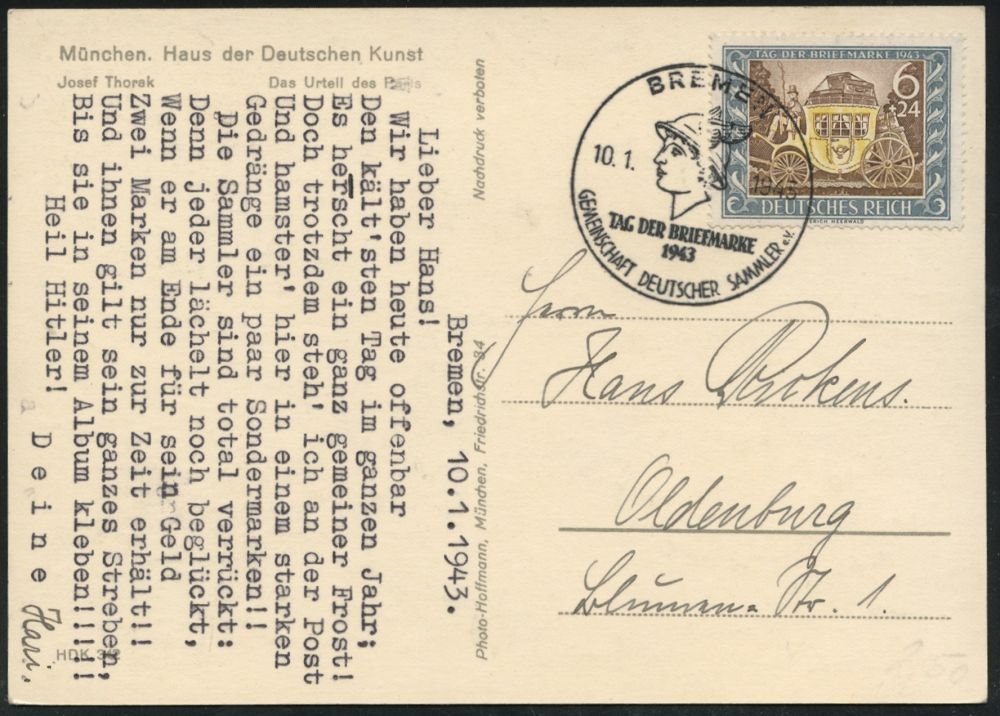 München. Haus der Deutschen Kunst
Josef Thorak Das Urteil des Paris
Bremen, 10.1.1943.
Lieber Hans!
Wir haben heute offenbar
Den kält'sten Tag im ganzen Jahr;
Es herscht ein ganz gemeiner Frost!
Doch trotzdem steh' ich an der Post
Und hamster' hier in einem starken
Gedränge ein paar Sondermarken!!
Die Sammler sind total verrückt:
Denn jeder lächelt noch beglückt,
Wenn er am Ende für sein Geld
Zwei Marken nur zur Zeit erhält!!
Und ihnen gilt sein ganzes Streben,
Bis sie in seinem Album kleben!!!!!
Heil Hitler!
Deine
HDK
Nachdruck verboten
Photo-Hoffmann, München, Friedrichstr. 34
BREMEN
10.1. 1943
TAG DER BRIEFMARKE
1943
GEMEINSCHAFT DEUTSCHER SAMMLER e.V.
TAG DER BRIEFMARKE 1943
6
+24
DEUTSCHES REICH
ERICH MEERWALD
Herrn
Hans
Oldenburg
Blumen-Str. 1.
2,50